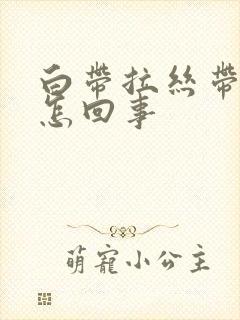 白帶拉絲帶
怎回事
萌寵小公主